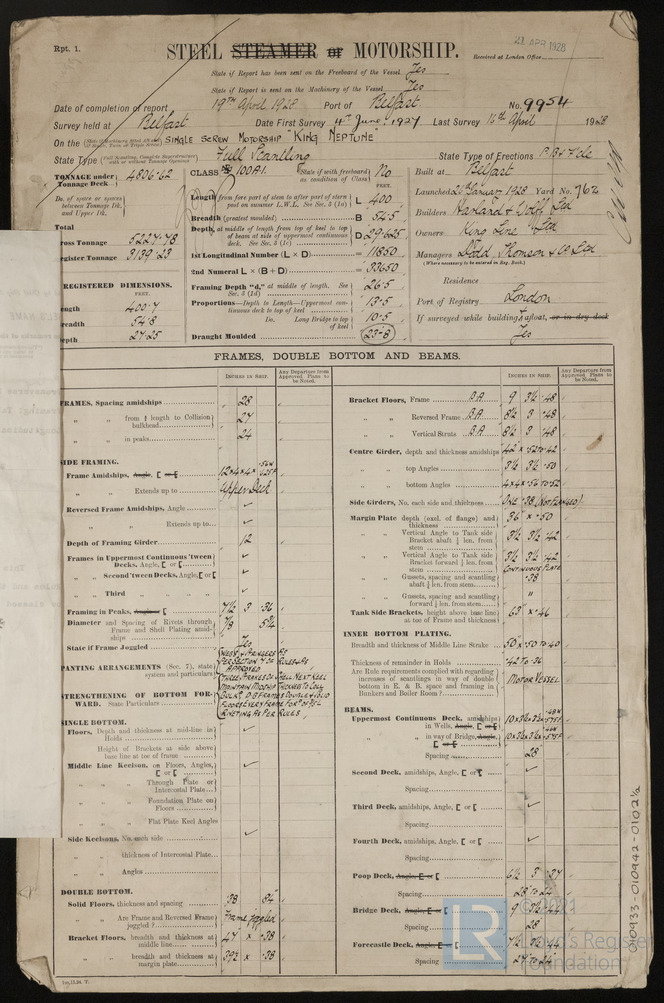 Rpt. 1.
21 APR 1928
STEEL STEAMER or MOTORSHIP.
Received at London Office
State if Report has been sent on the Freeboard of the Vessel Yes
State if Report is sent on the Machinery of the Vessel Yes
Date of completion of report 19TH April 1928 Port of Belfast No. 9954
Survey held at Belfast Date First Survey 4th June 1927 Last Survey 16th April 1928
On the SINGLE SCREW MOTORSHIP "KING NEPTUNE"
State Type Full Scantling State Type of Erections P.B & Fcle
TONNAGE under Tonnage Deck 4806.62
Do. of space or spaces between Tonnage Dk. and Upper Dk.
Total
Gross Tonnage 5227.78
Register Tonnage 3139.23
REGISTERED DIMENSIONS.
FEET.
Length 400.7
Breadth 54.8
Depth 27.25
CLASS 100A1. State if with freeboard as condition of Class No
FEET.
Length from fore part of stem to after part of stern post on summer L.W.L. See Sec. 3 (1a) L 400
Breadth (greatest moulded) B 54.5
Depth, at middle of length from top of keel to top of beam at side of uppermost continuous deck. See Sec. 3 (1c) D 29.625
1st Longitudinal Number (L × D) = 11850
2nd Numeral L × (B + D) = 33650
Framing Depth "d," at middle of length. See Sec. 3 (1d) 26.5
Proportions—Depth to Length—Uppermost continuous deck to top of keel 13.5
Do. Long Bridge to top of keel 10.5
Draught Moulded 23-8
Built at Belfast
Launched 21 January 1928 Yard No. 762
Builders Harland & Wolff Ltd
Owners King Line Ltd
Managers Dodd, Thomson & Co Ltd
(Where necessary to be entered on Reg. Book.)
Residence
Port of Registry London
If surveyed while building, afloat, or in dry dock
Yes
FRAMES, DOUBLE BOTTOM AND BEAMS.
INCHES IN SHIP.
Any Departure from Approved Plans to be Noted.
FRAMES, Spacing amidships 28
" " from ⅕ length to Collision bulkhead 27
" " in peaks 24
SIDE FRAMING.
Frame Amidships, Angle, [ or [
" " Extends up to Upper Deck
Reversed Frame Amidships, Angle ✓
" " Extends up to ✓
Depth of Framing Girder 12
Frames in Uppermost Continuous 'tween Decks, Angle, [ or [ ✓
" " Second 'tween Decks, Angle, [ or [ ✓
" " Third " " ✓
Framing in Peaks, Angle or [ 7½ 3 .36
Diameter and Spacing of Rivets through Frame and Shell Plating amidships 7/8 5¼
State if Frame Joggled Yes
PANTING ARRANGEMENTS (Sec. 7), state system and particulars WEBS & STRINGERS AS PER SECTION 7 OF RULES & AS APPROVED
STRENGTHENING OF BOTTOM FORWARD. State Particulars
RIVETING AS PER RULES
SINGLE BOTTOM.
Floors, Depth and thickness at mid-line in Holds ✓
Height of Brackets at side above base line at toe of frame
Middle Line Keelson, on Floors, Angles, [ or [ ✓
" " Through Plate or Intercostal Plate
" " Foundation Plate on Floors
" " Flat Plate Keel Angles
Side Keelsons, No. each side ✓
" " thickness of Intercostal Plate
" " Angles
DOUBLE BOTTOM.
Solid Floors, thickness and spacing .38 84
" " Are Frame and Reversed Frame joggled? Frame joggled
Bracket Floors, breadth and thickness at middle line 47 × .38
" " breadth and thickness at margin plate 39½ × .38
INCHES IN SHIP.
Any Departure from Approved Plans to be Noted.
Bracket Floors, Frame B.A 9 3½ .48
" " Reversed Frame B.A. 8½ 3 .48
" " Vertical Struts B.A 8½ 3 .48
Centre Girder, depth and thickness amidships 42 × .52 to .42
" " top Angles 3½ 3½ .50
" " bottom Angles 4 × 4 × .56 to .52
Side Girders, No. each side and thickness ONE .38 (NOT FLANGED)
Margin Plate depth (excl. of flange) and thickness 36 × .50
" " Vertical Angle to Tank side Bracket abaft ¼ len. from stem 3½ 3½ .42
" " Vertical Angle to Tank side Bracket forward ¼ len. from stem 3½ 3½ .42
" " Gussets, spacing and scantling abaft ¼ len. from stem CONTINUOUS PLATE .38
" " Gussets, spacing and scantling forward ¼ len. from stem "
Tank Side Brackets, height above base line at toe of Frame and thickness 63 × .46
INNER BOTTOM PLATING.
Breadth and thickness of Middle Line Strake 50 × .50 to .40
Thickness of remainder in Holds .42 to .36
Are Rule requirements complied with regarding increases of scantlings in way of double bottom in E. & B. space and framing in Bunkers and Boiler Room? MOTOR VESSEL
BEAMS.
Uppermost Continuous Deck, amidships in Wells, Angle, [ or [
" " in way of Bridge, Angle, [ or [
Spacing 28
Second Deck, amidships, Angle, [ or [ ✓
Spacing
Third Deck, amidships, Angle, [ or [ ✓
Spacing
Fourth Deck, amidships, Angle, [ or [ ✓
Spacing
Poop Deck, Angle, [ or [ 6½ 3 .34
Spacing 28 to 24
Bridge Deck, Angle, [ or [ 9 3½ .44
Spacing 28
Forecastle Deck, Angle, [ or [ 7½ 3½ .44
Spacing 27 to 24
010933-010942-0102½
LR
© 2021
Lloyd's Register
Foundation